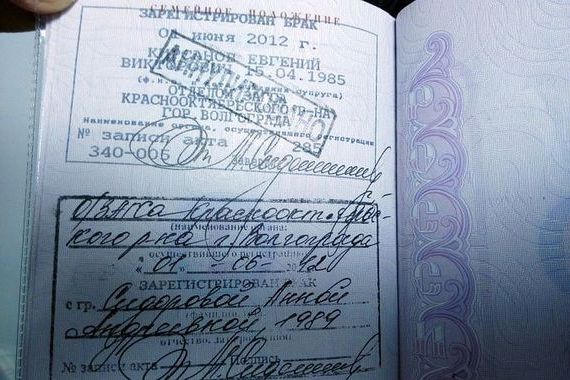 СЕМЕЙНОЕ ПОЛОЖЕНИЕ
ЗАРЕГИСТРИРОВАН БРАК
01 июня 2012 г.
ЕВГЕНИЙ
15.04.1985
ОТДЕЛОМ
КРАСНООКТЯБРЬСКОГО Р-НА
ГОР. ВОЛГОГРАДА
наименование органа, осуществившего регистрацию
№ записи акта 285
340-006
ОЗАГСа Краснооктябрьс-
кого р-на г. Волгограда
(наименование органа,
осуществившего регистрацию)
" 01 " - 06 - 2012
ЗАРЕГИСТРИРОВАН БРАК
с гр. Сидоровой Анной
Андреевной, 1989
отчество, дата рождения
№ записи акта Подпись